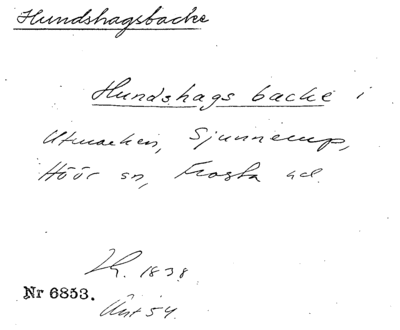 Hundshagsbacke
Hundshags backe i
Utmarken, Sjunnerup,
Höör sn, Frosta hd.
Lh. 1838.
Nr 6853.
54.